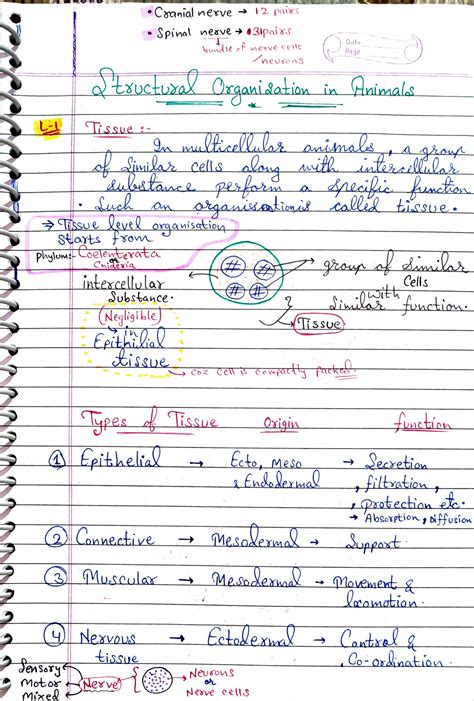 • Cranial nerve → 12 pairs
• Spinal nerve → 31pairs
bundle of nerve cells
/neurons
Date
Page
Structural Organisation in Animals
L-1 Tissue :-
In multicellular animals, a group
of similar cells along with intercellular
substance perform a specific function.
Such an organisation is called tissue.
⇒ Tissue level organisation
starts from
phylum:- Coelenterata
or
Cnideria
intercellular
Substance.
(Negligible)
→ in
Epithilial
tissue
→ coz cell is compactly packed.
→ group of similar
Cells
with
Similar function.
→ Tissue
Types of Tissue Origin function
① Epithelial → Ecto, Meso & Endodermal → Secretion, filtration, protection etc.
→ Absorption, Diffusion
② Connective → Mesodermal → Support.
③ Muscular → Mesodermal → Movement & locomotion.
④ Nervous tissue → Ectodermal → Control & Co-ordination.
Sensory
Motor ← Nerve → Neurons
Mixed or
Nerve cells